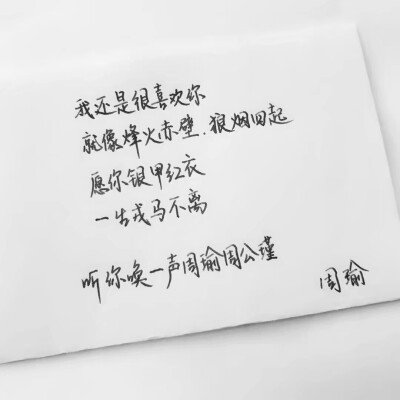 我还是很喜欢你
就像烽火赤壁.狼烟四起
愿你银甲红衣
一生戎马不离
听你唤一声周瑜周公瑾
周瑜